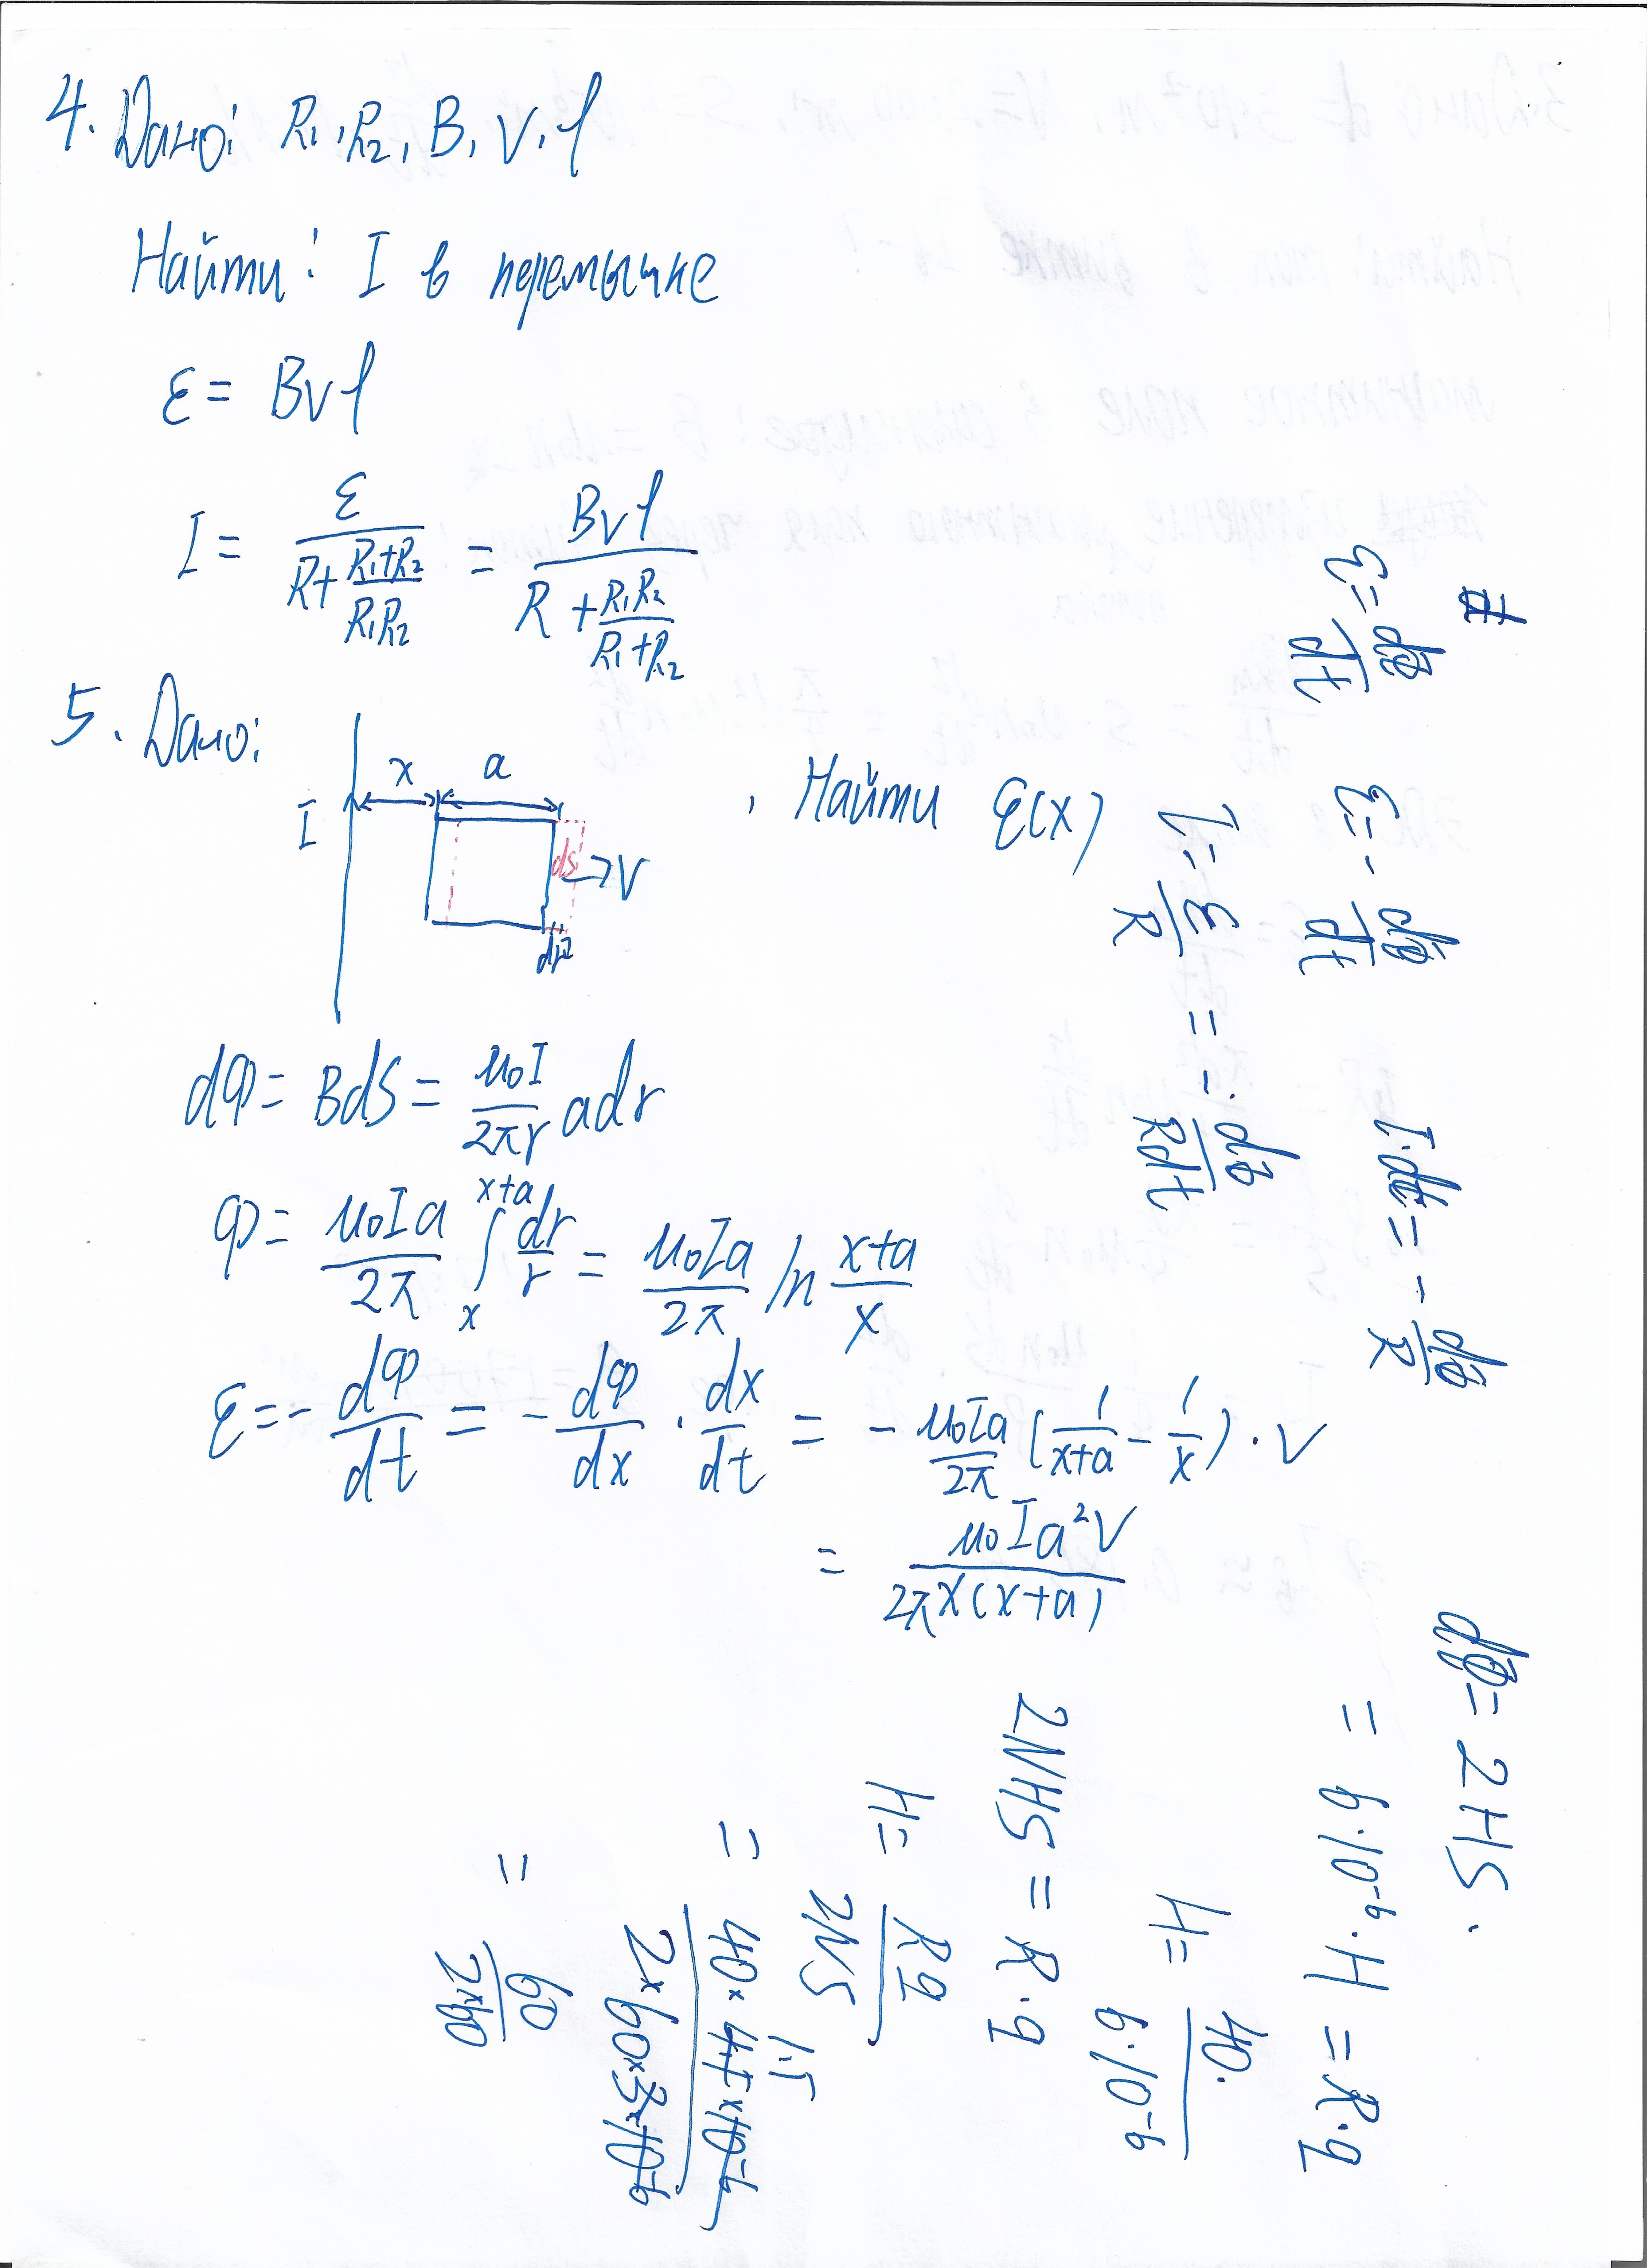 4. Дано: R₁, R₂, B, V, l
Найти: I в перемычке
ε = Bvl
I = ε / (R + (R₁+R₂)/(R₁R₂)) = Bvl / (R + R₁R₂/(R₁+R₂))
5. Дано:
x a
I
, Найти ε(x)
ds → V
dr
dФ = BdS = μ₀I/(2πr) adr
Ф = μ₀Ia/(2π) ∫ₓ^(x+a) dr/r = μ₀Ia/(2π) ln (x+a)/x
ε = - dФ/dt = - dФ/dx · dx/dt = - μ₀Ia/(2π) (1/(x+a) - 1/x) · V
= μ₀Ia²V / (2πx(x+a))
ε = dФ/dt
ε = - dФ/dt
I = ε/R = - dФ/(Rdt)
I·dt = - dФ/R
dФ = 2HS.
= 6·10⁻⁶·H = R·q
H = 40. / (6·10⁻⁶)
2NHS = R·q
H = Rq / (2NS)
1.5
= 40×45×10⁻⁶ / (2×60×3×10⁻⁶)
= 60 / (2×60)